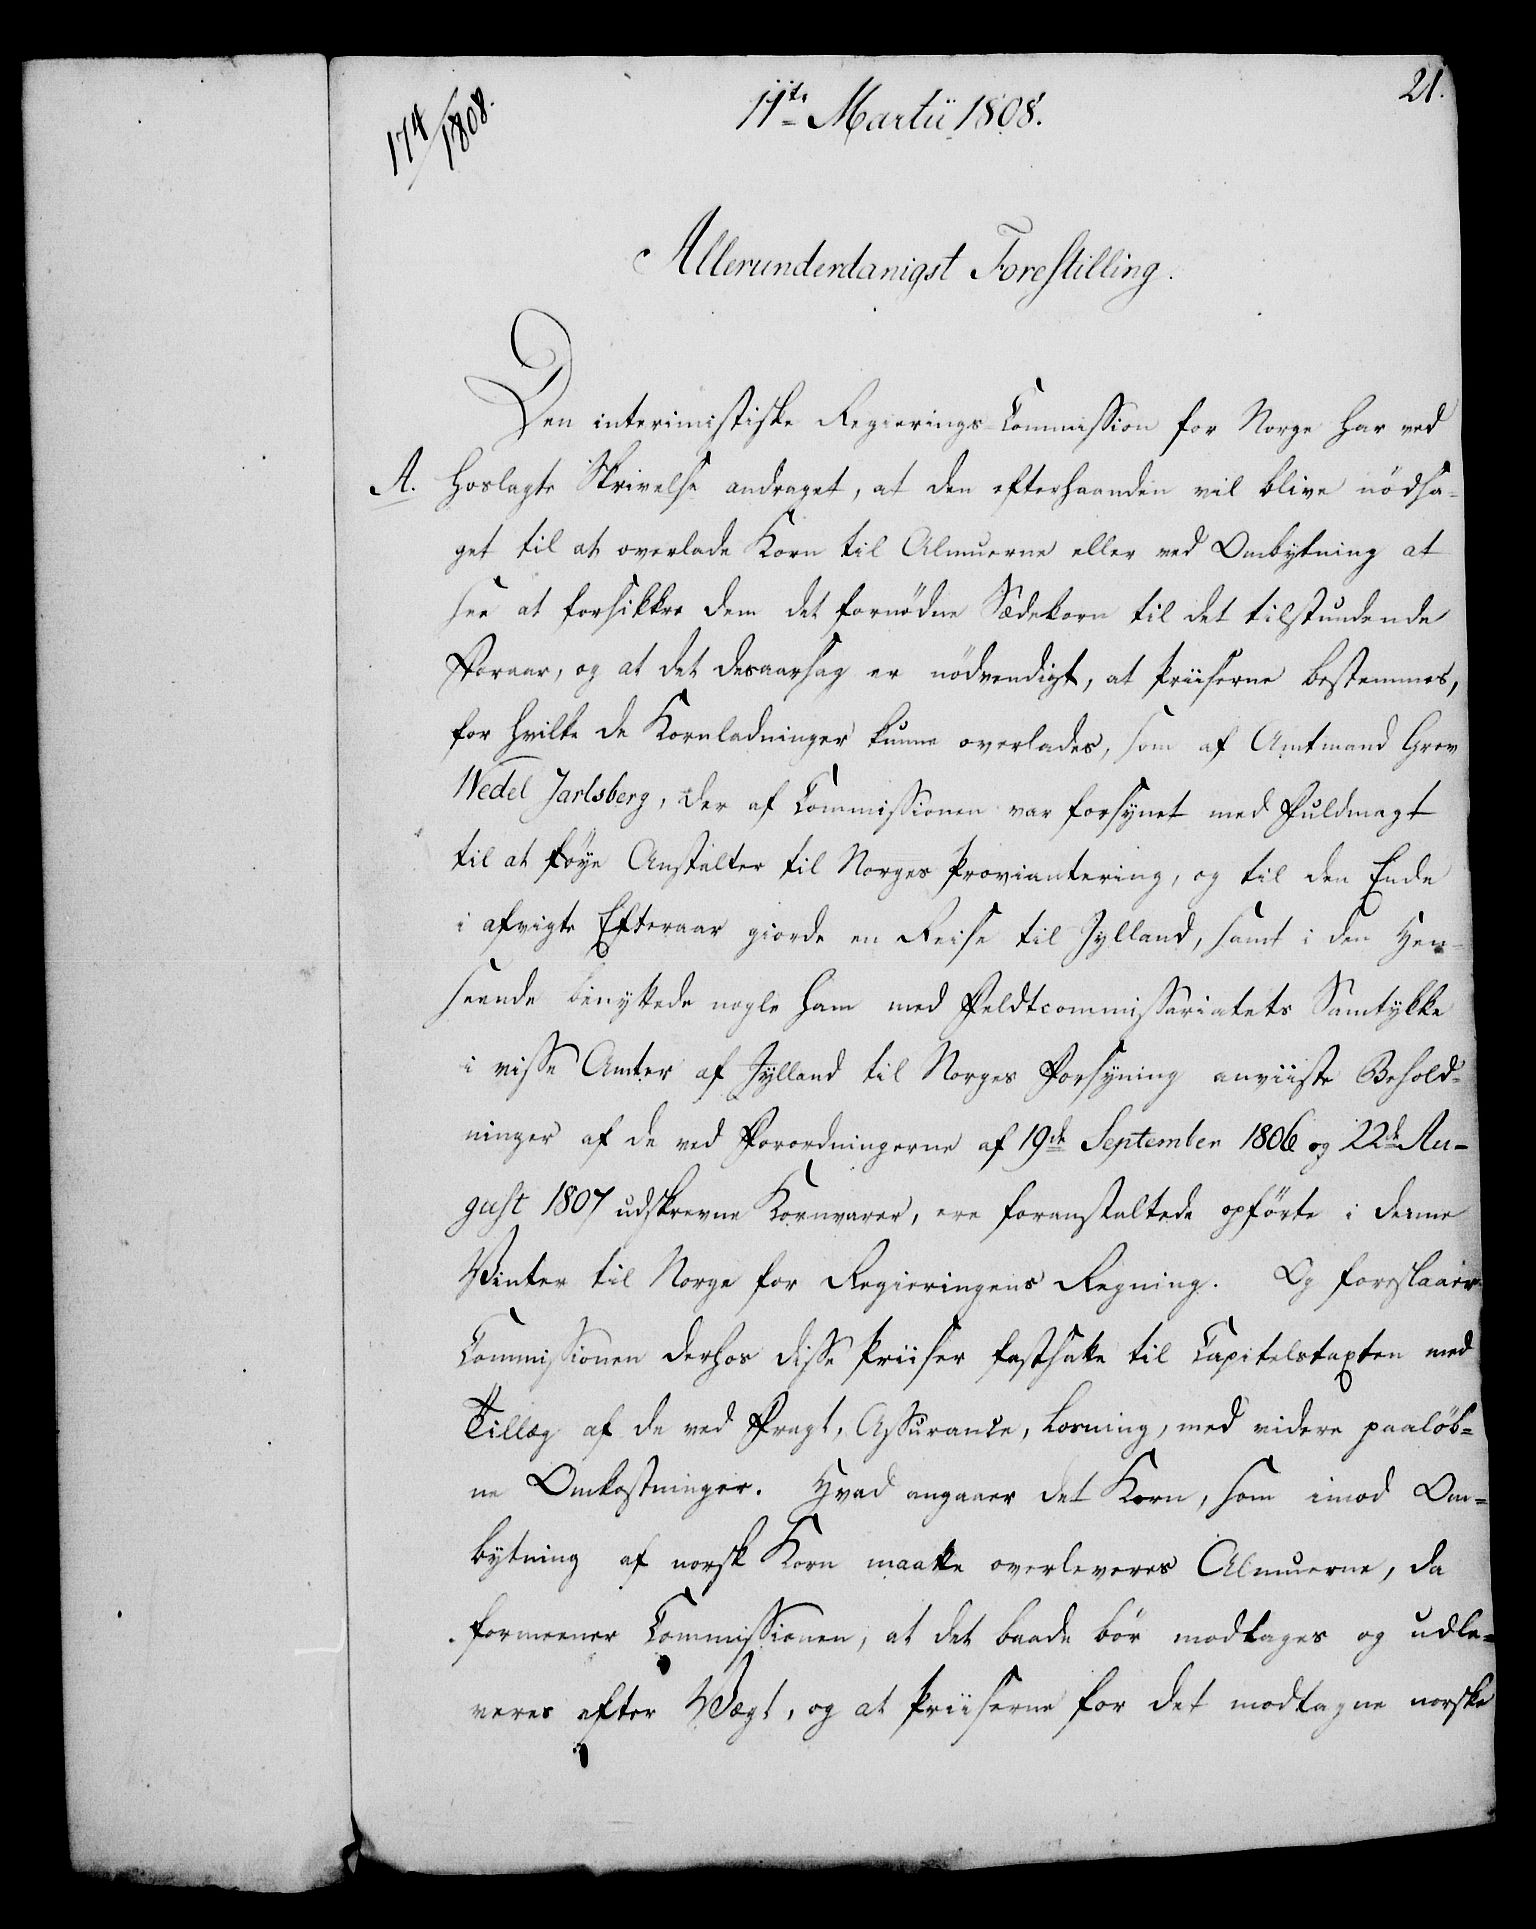 174/1808.
11te Martii 1808.
21.
Allerunderdanigst Forestilling.
Den interimistiske Regierings-Commission for Norge har ved
A. hoslagte Skrivelse andraget, at den efterhaanden vil blive nödsa-
get til at overlade Korn til Almuerne eller ved Ombytning at
see at forsikkre dem det fornödne Sædekorn til det tilstundende
Foraar, og at det desaarsag er nödvendigt, at Priiserne bestemmes,
for hvilke de Kornladninger kunne overlades, som af Amtmand Grev
Wedel Jarlsberg, der af Commissionen var forsynet med Fuldmagt
til at föye Anstalter til Norges Proviantering, og til den Ende
i afvigte Efteraar giorde en Reise til Jylland, samt i den Hen-
seende benyttede nogle ham med Feldtcommissariatets Samtykke
i visse Amter af Jylland til Norges Forsyning anviiste Behold-
ninger af de ved Forordningerne af 19de September 1806 og 22de Au-
gust 1807 udskrevne Kornvarer, ere foranstaltede opförte i denne
Vinter til Norge for Regieringens Regning. Og foreslaaer
Commissionen derhos disse Priiser fastsatte til Capitelstaxten med
Tillæg af de ved Fragt, Assurance, Losning, med videre paalöb-
ne Omkostninger. Hvad angaaer det Korn, som imod Om-
bytning af norsk Korn maatte overleveres Almuerne, da
formeener Commissionen, at det baade bör modtages og udle-
veres efter Vægt, og at Priiserne for det modtagne norske